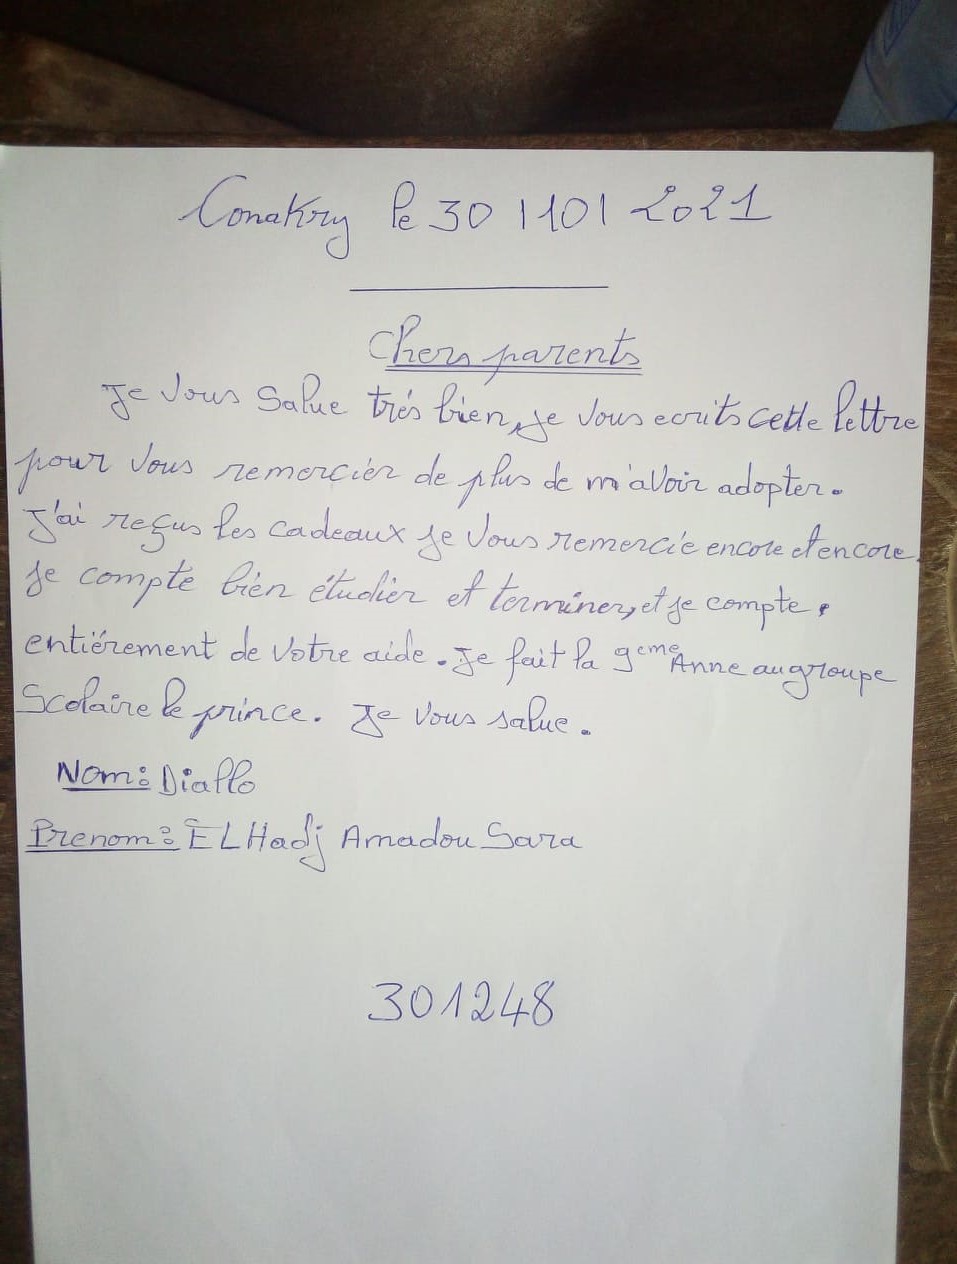 Conakry le 30 / 10 / 2021
Chers parents
Je vous salue très bien, je vous ecrits cette lettre
pour vous remercier de plus de m'avoir adopter.
J'ai reçus les cadeaux je vous remercie encore et encore.
Je compte bien étudier et terminer, et je compte,
entiérement de votre aide. Je fait la 9eme Anne au groupe
Scolaire le prince. Je vous salue.
Nom: Diallo
Prenom: EL Hadj Amadou Sara
301248